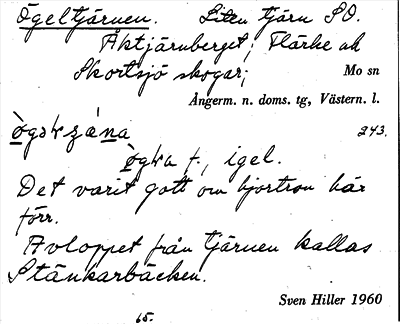 Ögeltjärnen. Liten tjärn SO.
Åktjärnberget, Flärke ad
Skortsjö skogar;
Mo sn
Ångerm. n. doms. tg, Västern. l.
243.
f., igel.
Det varit gott om hjortron här
förr.
Avloppet från tjärnen kallas
Stänkarbäcken.
Sven Hiller 1960
65.